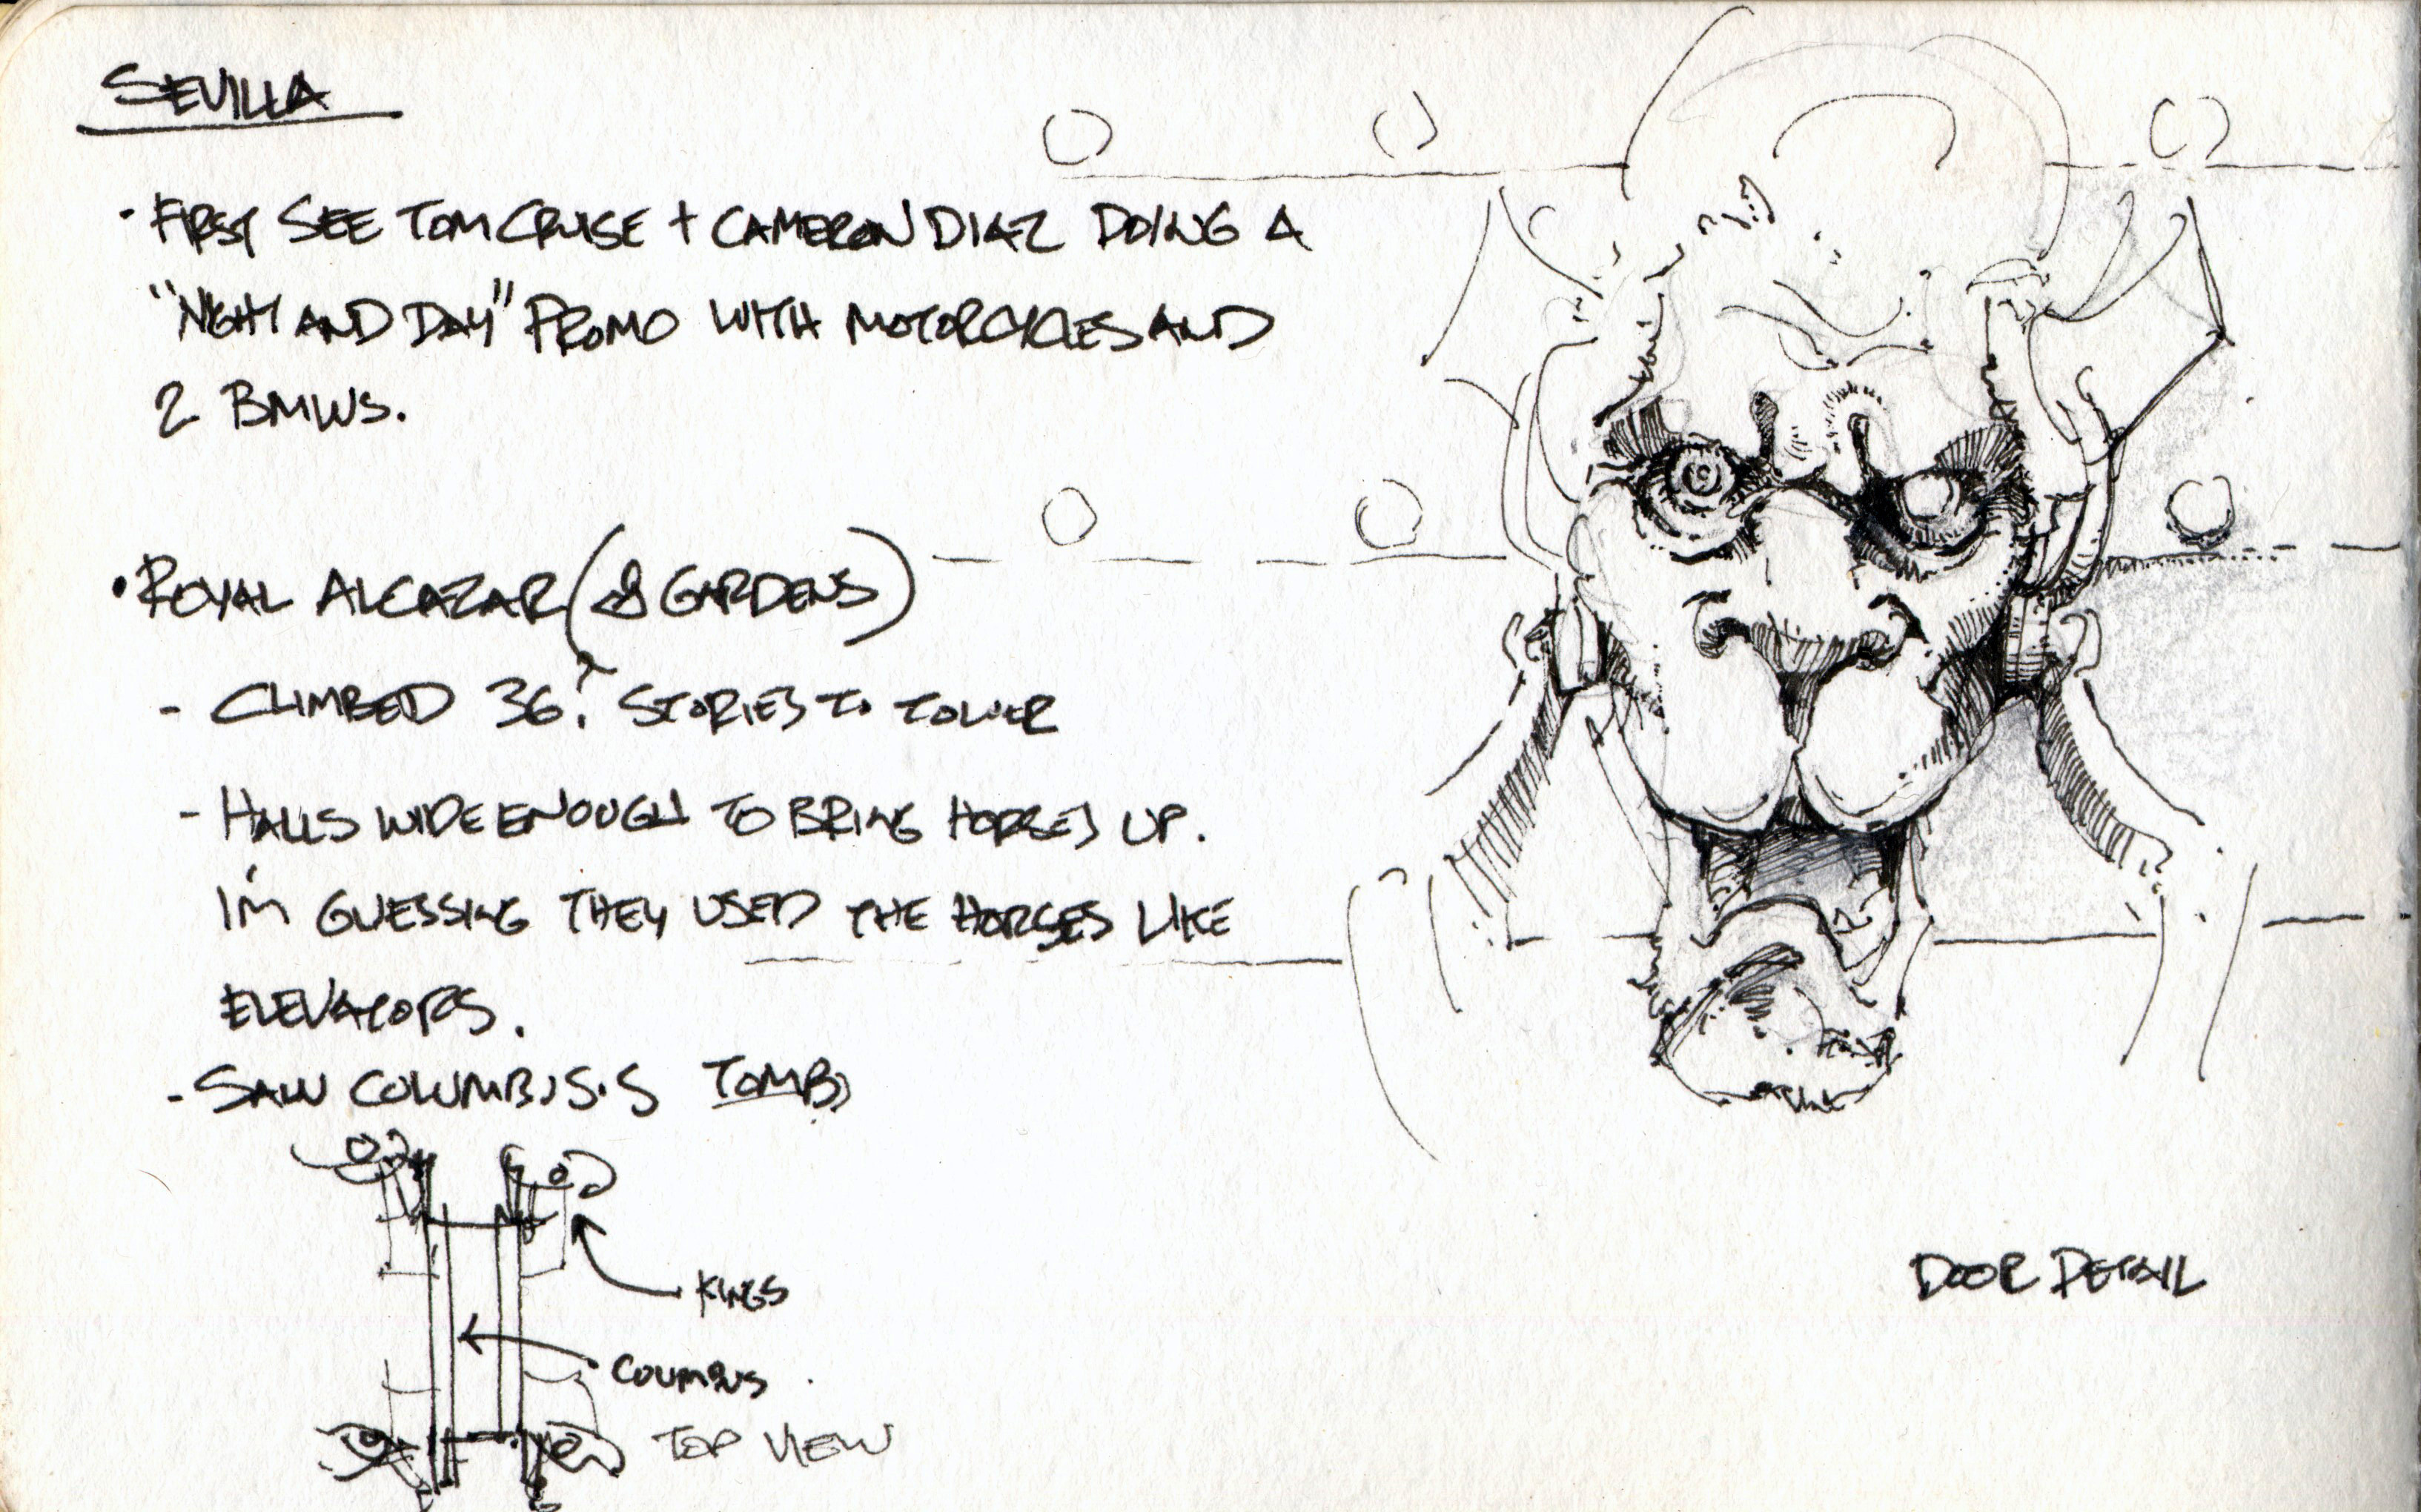 SEVILLA
• FIRST SEE TOM CRUISE + CAMERON DIAZ DOING A
"NIGHT AND DAY" PROMO WITH MOTORCYCLES AND
2 BMWS.
• ROYAL ALCAZAR (& GARDENS)
- CLIMBED 36? STORIES TO TOWER
- HALLS WIDE ENOUGH TO BRING HORSES UP.
I'M GUESSING THEY USED THE HORSES LIKE
ELEVATORS.
- SAW COLUMBUS'S TOMB
KINGS
COLUMBUS
TOP VIEW
DOOR DETAIL